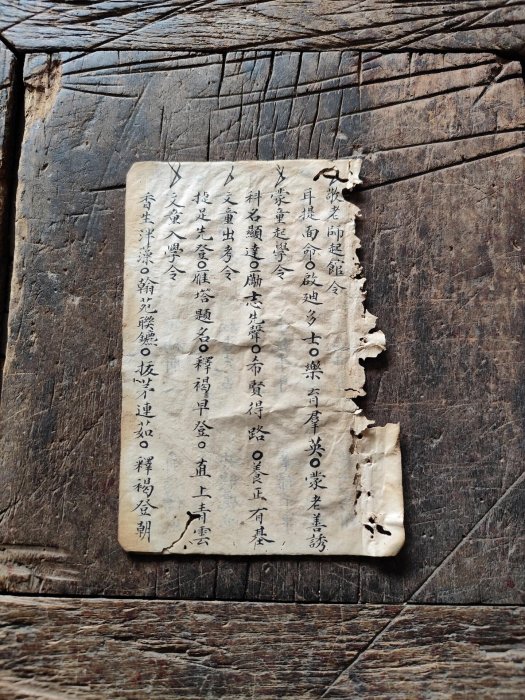 敬老師起館令
耳提面命○啟迪多士○樂育羣英○蒙老善誘
蒙童起學令
科名顯達○勵志先聲○希賢得路○養正有基
文童出考令
捷足先登○雁塔題名○釋褐早登○直上青雲
文童入學令
香生泮藻○翰苑聯鑣○拔茅連茹○釋褐登朝